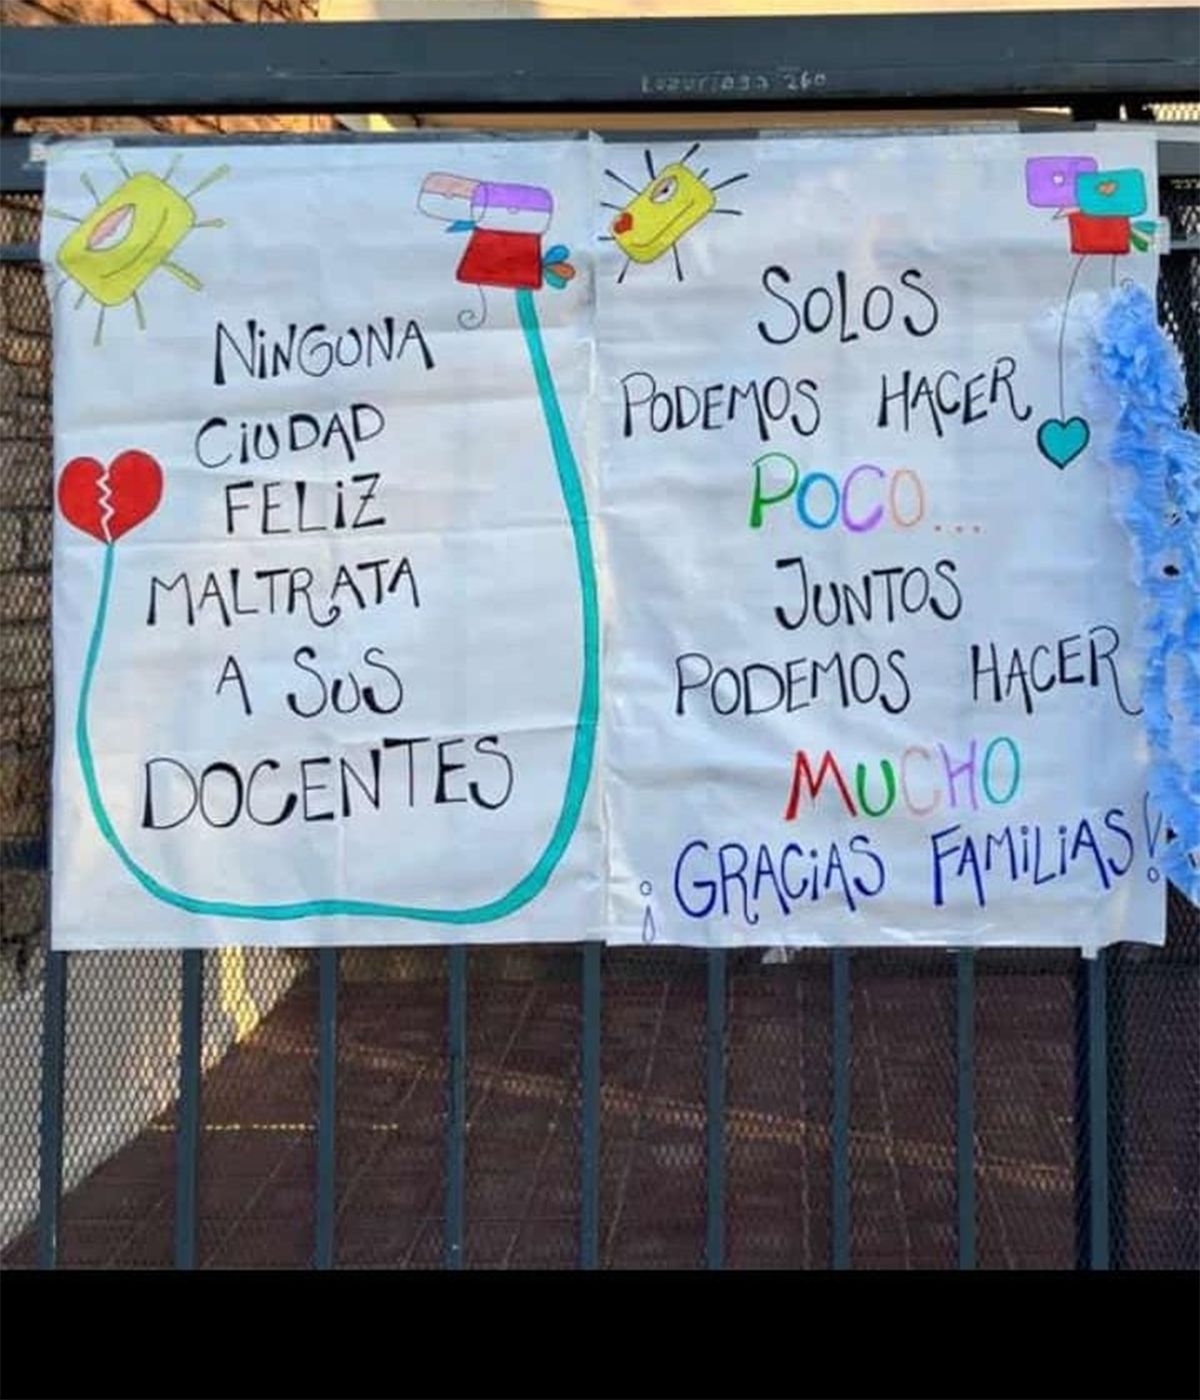 Luzuriaga 260
NiNGUNA
CiUDAD
FELiZ
MALTRATA
A SUS
DOCENTES
SOLOS
PODEMOS HACER
POCO...
JUNTOS
PODEMOS HACER
MUCHO
¡GRACiAS FAMiLiAS!